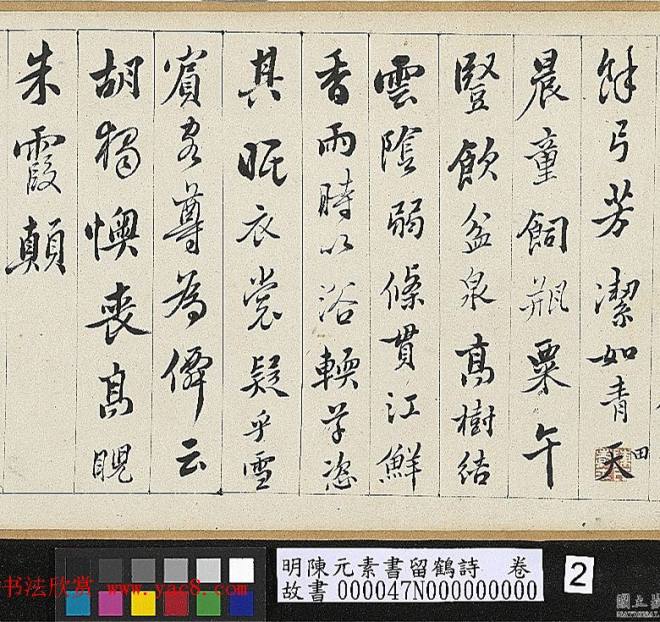 鮮弓芳潔如青天
田
晨童飼瓶粟午
豎飲盆泉高樹結
雲陰弱條貫江鮮
香雨時以浴軟草恣
其眠衣裳疑乎雪
賓客尊為僊云
胡獨懊喪高睨
朱霞顛
书法欣赏 www.yac8.com
明陳元素書留鶴詩 卷
故書 000047N000000000
2
國立